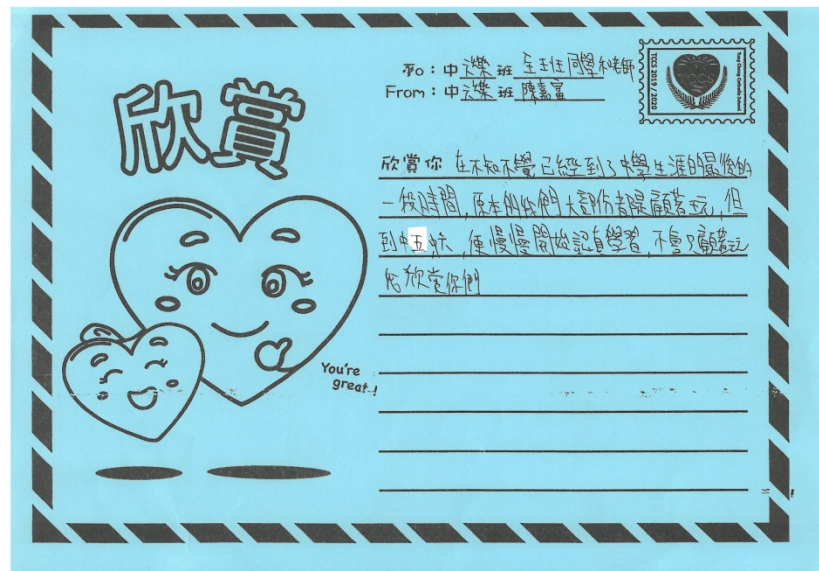 欣賞
To：中六樂班 全班同學和老師
From：中六樂班 陳嘉富
TCCS 2019 / 2020
TCCS
欣賞你 在不知不覺已經到了中學生涯的最後的
一段時間，原本的我們大部份都是顧著玩，但
到中五
，便慢慢開始認真學習，不會只顧著玩
欣賞你們
You're
great..!